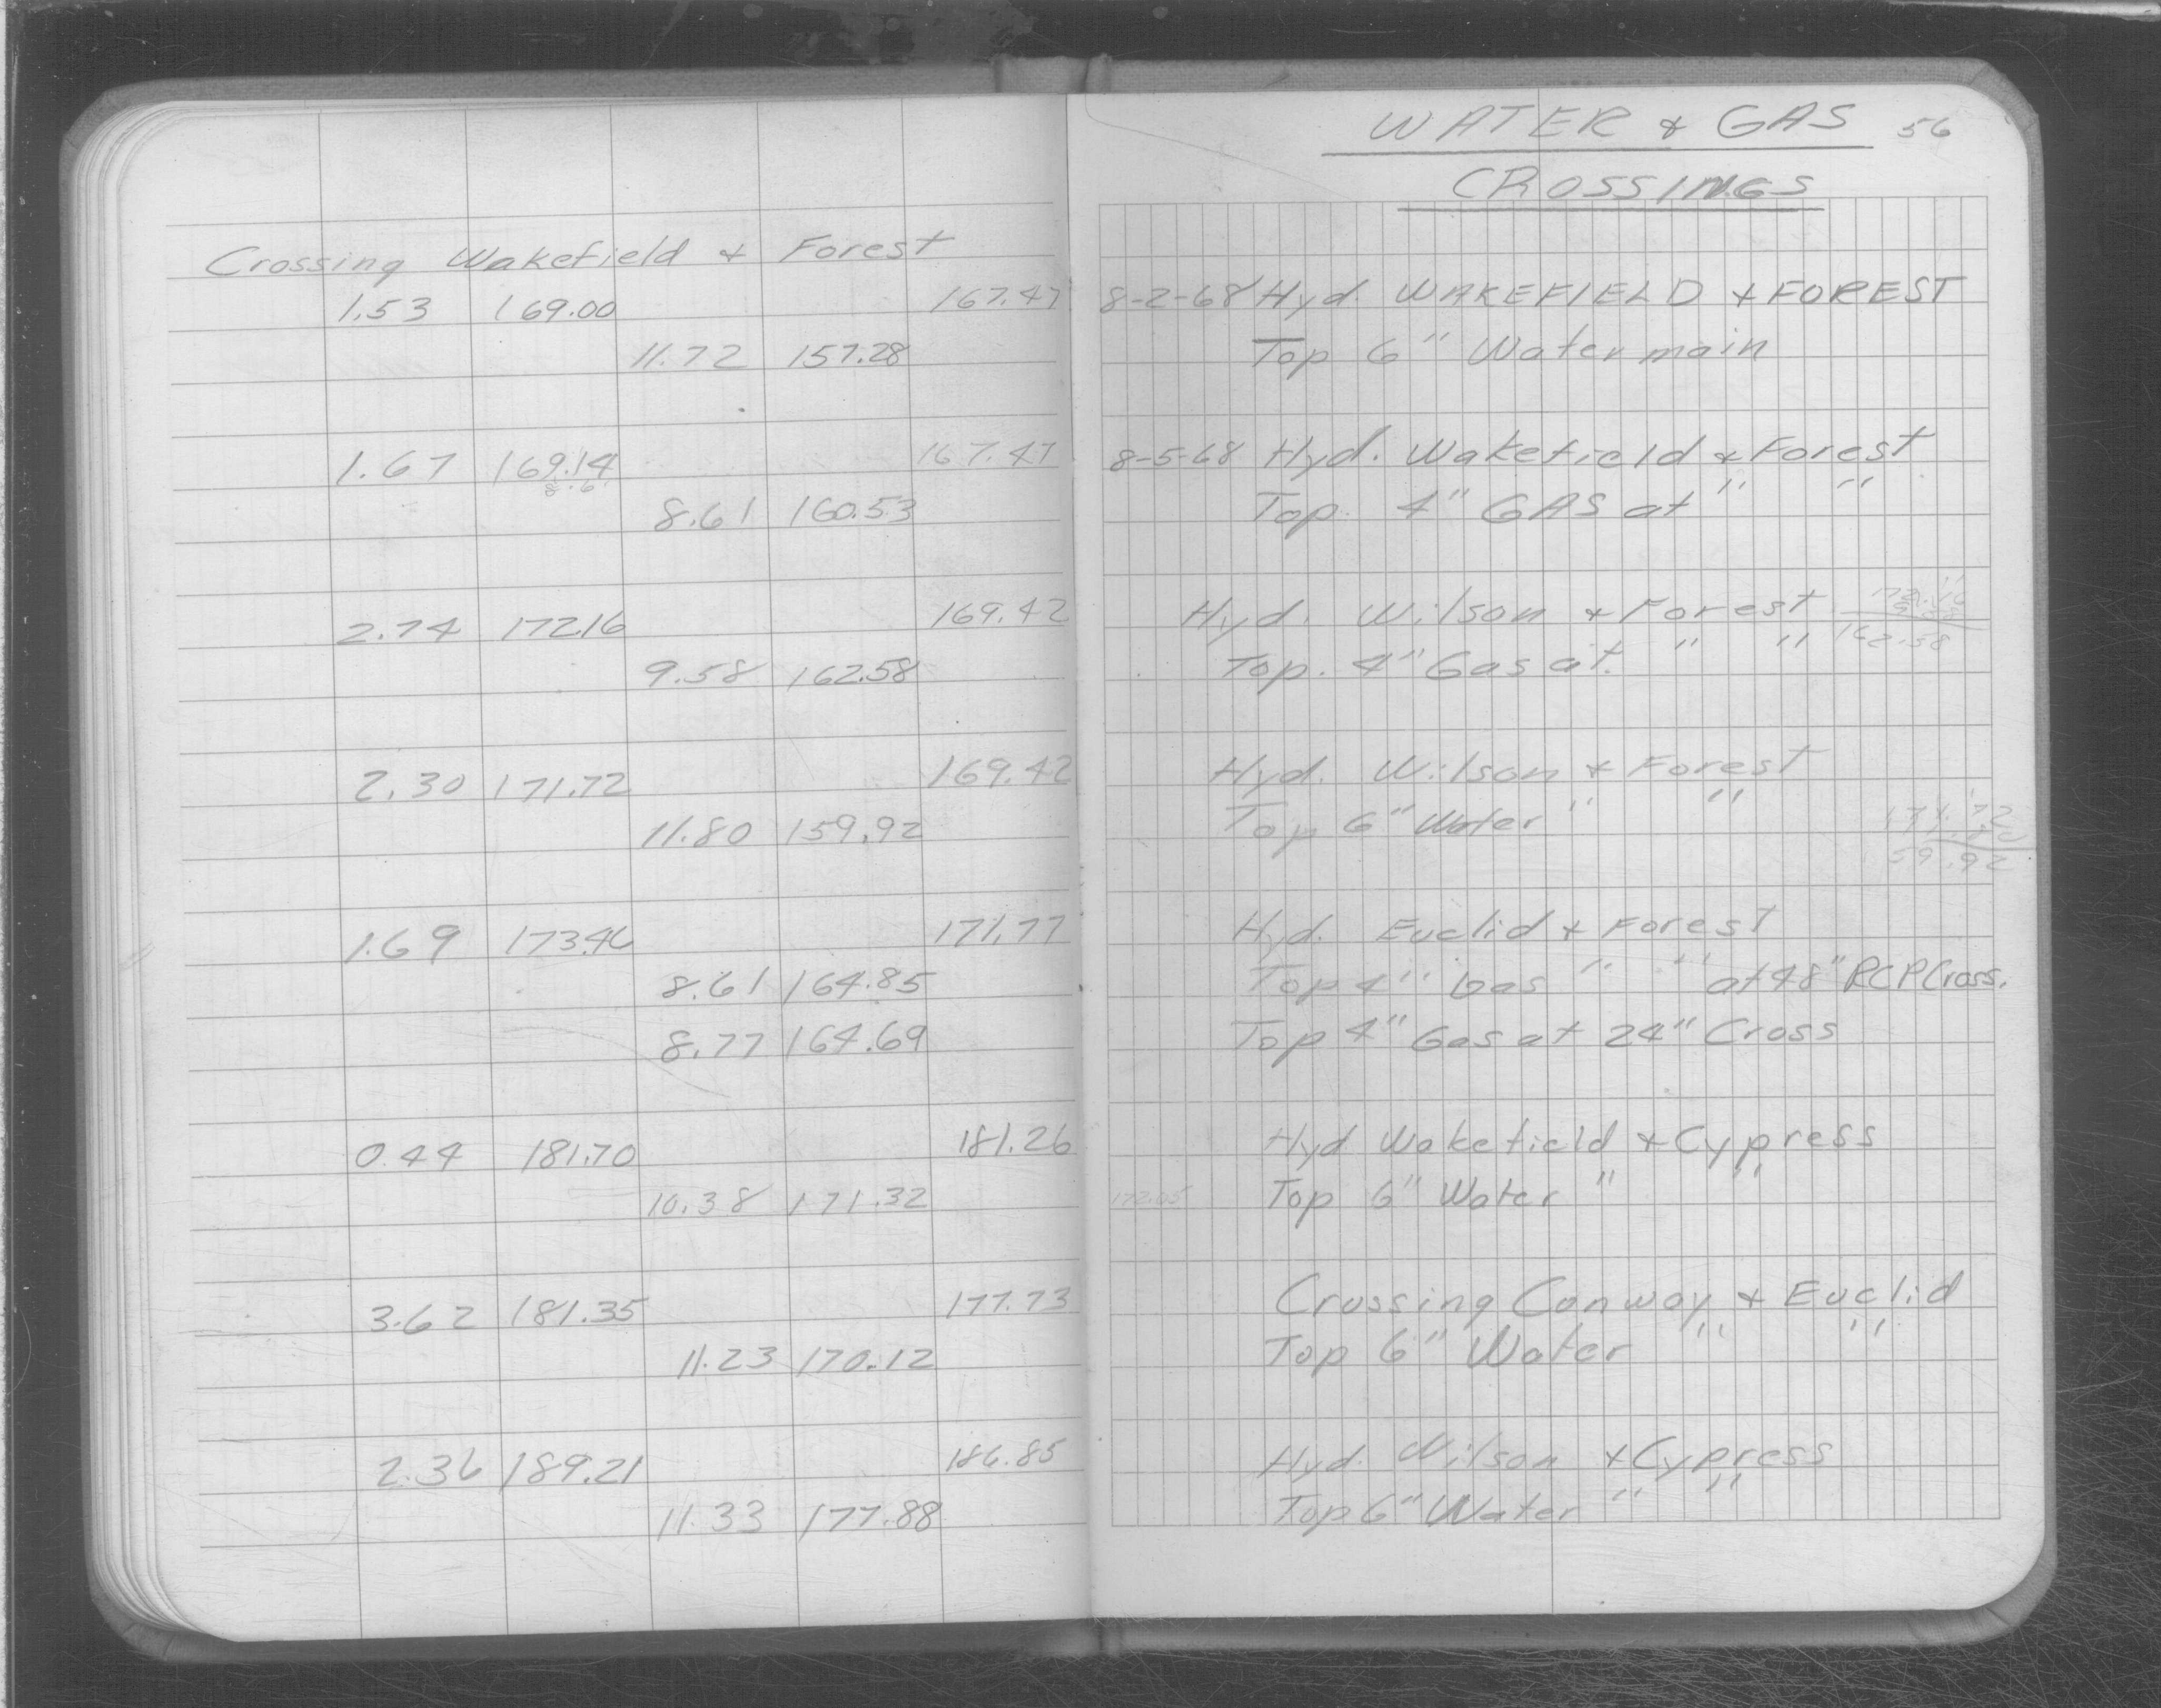 WATER & GAS 56
CROSSINGS
Crossing Wakefield & Forest
1.53 169.00 167.47 8-2-68 Hyd. WAKEFIELD & FOREST
11.72 157.28 Top 6" Water main
1.67 169.14 167.47 8-5-68 Hyd. Wakefield & Forest
8.61
8.61 160.53 Top. 4" GAS at " "
2.74 172.16 169.42 Hyd. Wilson & Forest 172.16
9.58
9.58 162.58 Top. 4" Gas at " " 162.58
2.30 171.72 169.42 Hyd. Wilson & Forest
11.80 159.92 Top 6" Water " " 171.72
59.92
1.69 173.46 171.77 Hyd. Euclid & Forest
8.61 164.85 Top 4" Gas " " at 48" RCP Cross.
8.77 164.69 Top 4" Gas at 24" Cross
0.44 181.70 181.26 Hyd Wakefield & Cypress
10.38 171.32 172.05 Top 6" Water " "
3.62 181.35 177.73 Crossing Conway & Euclid
11.23 170.12 Top 6" Water " "
2.36 189.21 186.85 Hyd. Wilson & Cypress
11.33 177.88 Top 6" Water " "